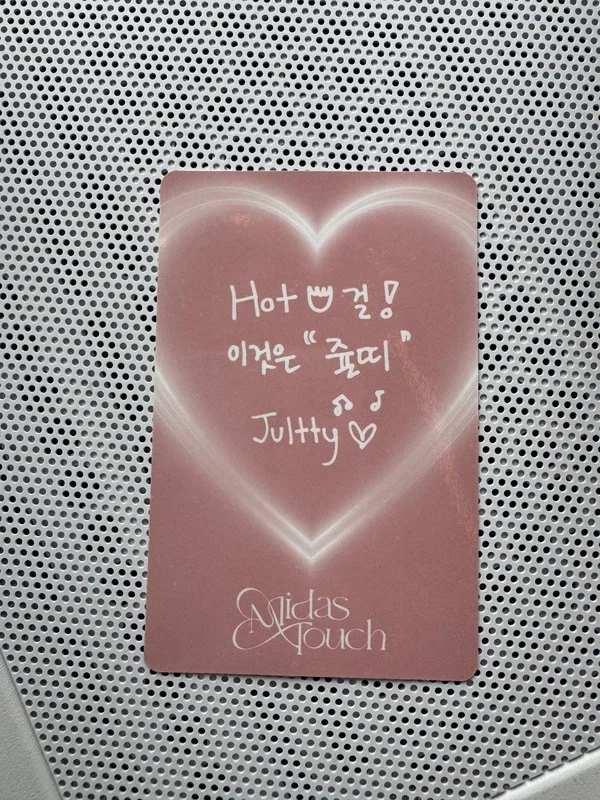 Hot 걸!
이것은 "쥴띠"
Jultty
Midas
Touch